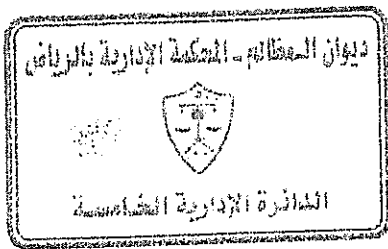 ديوان المظالم - المحكمة الإدارية بالرياض
الدائرة الإدارية الخامسة